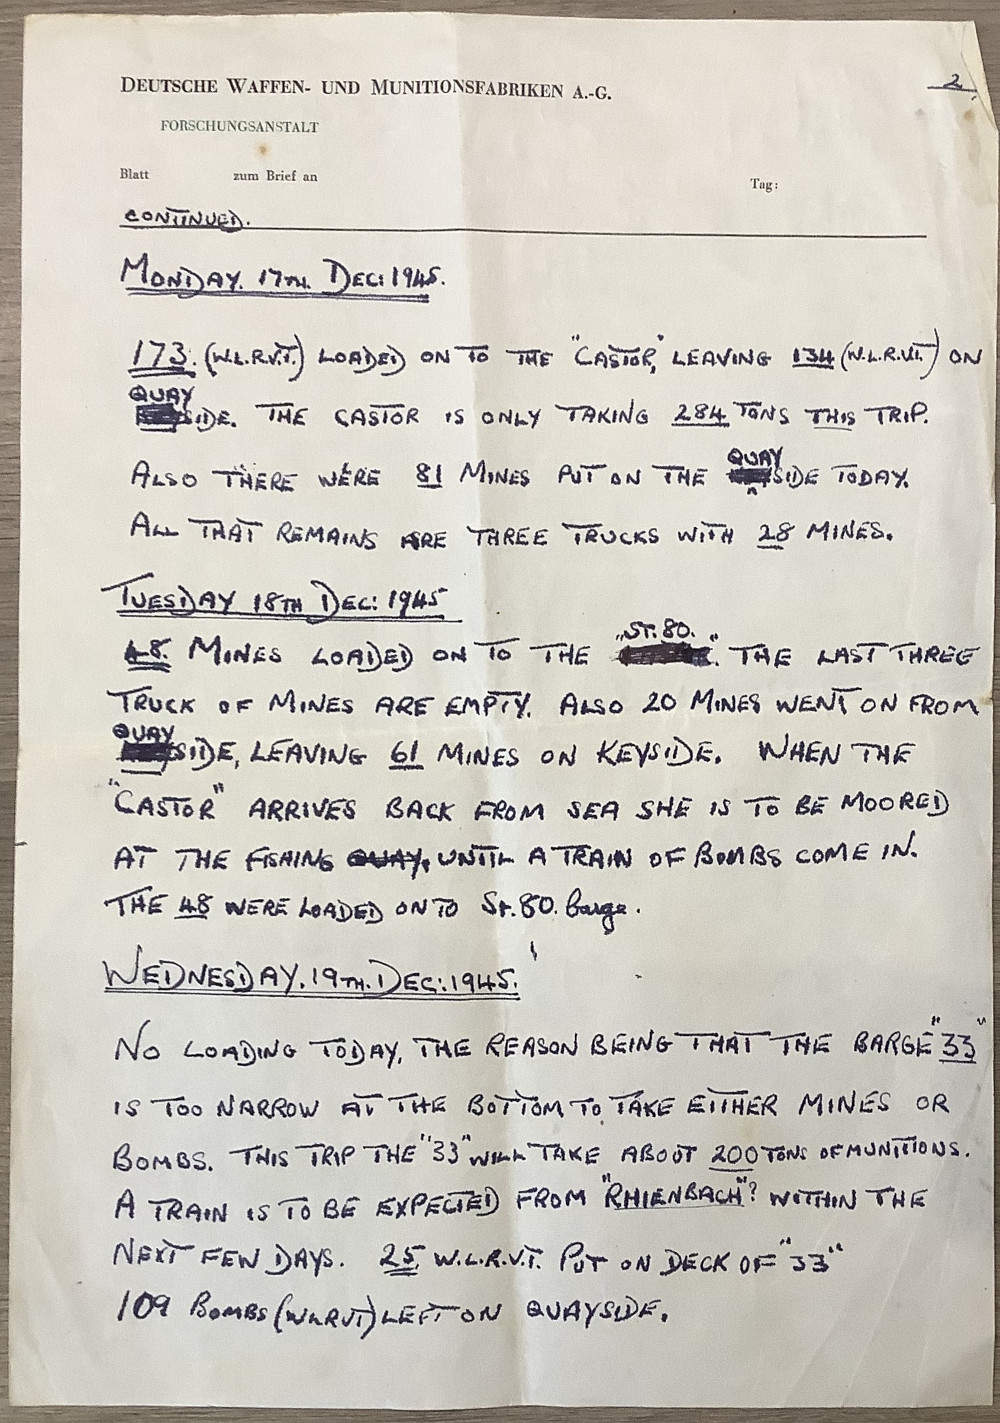 2.
DEUTSCHE WAFFEN- UND MUNITIONSFABRIKEN A.-G.
FORSCHUNGSANSTALT
Blatt zum Brief an
Tag:
CONTINUED.
MONDAY. 17TH. DEC: 1945.
173. (W.L.R.V.T.) LOADED ON TO THE "CASTOR," LEAVING 134 (W.L.R.V.T.) ON
QUAY
SIDE. THE CASTOR IS ONLY TAKING 284 TONS THIS TRIP.
QUAY
ALSO THERE WERE 81 MINES PUT ON THE SIDE TODAY.
ALL THAT REMAINS ARE THREE TRUCKS WITH 28 MINES.
TUESDAY 18TH DEC: 1945
"ST. 80."
48. MINES LOADED ON TO THE . THE LAST THREE
TRUCK OF MINES ARE EMPTY. ALSO 20 MINES WENT ON FROM
QUAY
SIDE, LEAVING 61 MINES ON KEYSIDE. WHEN THE
"CASTOR" ARRIVES BACK FROM SEA SHE IS TO BE MOORED
AT THE FISHING QUAY, UNTIL A TRAIN OF BOMBS COME IN.
THE 48 WERE LOADED ON TO St. 80. barge.
WEDNESDAY. 19TH. DEC: 1945.
NO LOADING TODAY, THE REASON BEING THAT THE BARGE "33"
IS TOO NARROW AT THE BOTTOM TO TAKE EITHER MINES OR
BOMBS. THIS TRIP THE "33" WILL TAKE ABOUT 200 TONS OF MUNITIONS.
A TRAIN IS TO BE EXPECTED FROM "RHIENBACH"? WITHIN THE
NEXT FEW DAYS. 25. W.L.R.V.T. PUT ON DECK OF "33"
109 BOMBS (WLRVT) LEFT ON QUAYSIDE.